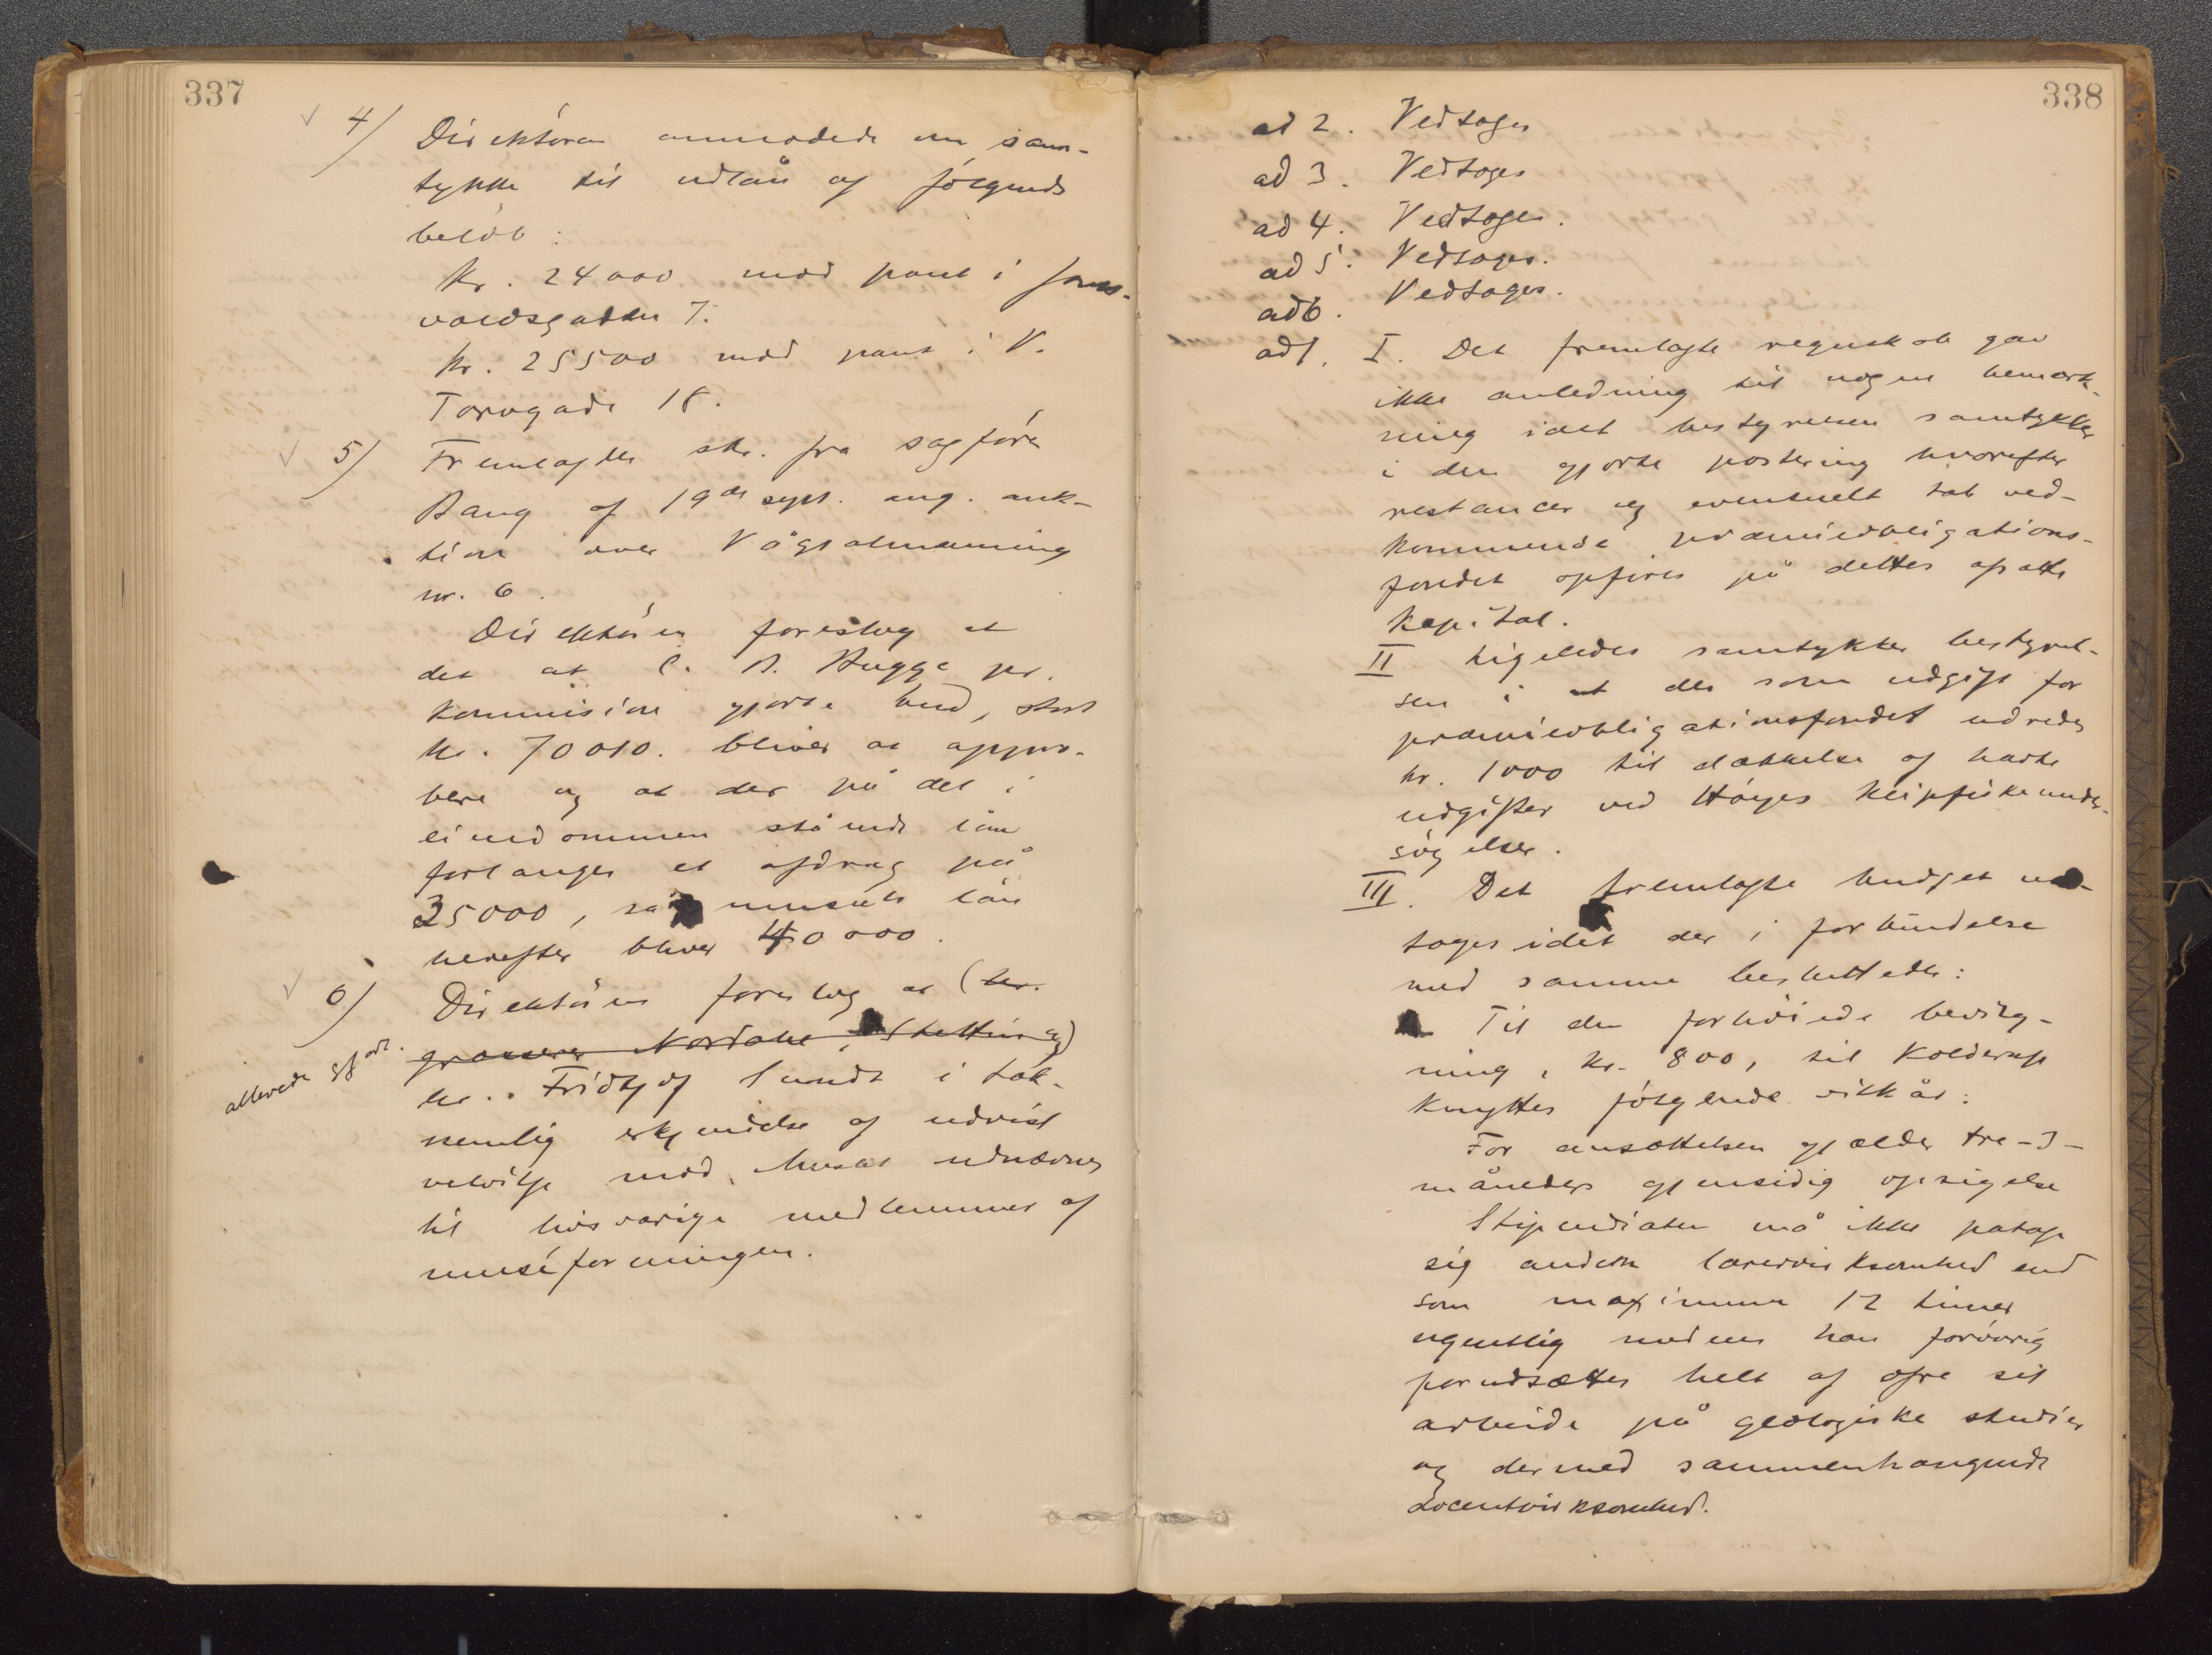 337
4) Direktøren anmodede om sam-
tykke til udlån af følgende
beløb:
Kr. 24000 mod pant i Jons-
voldsgaden 7.
Kr. 25500 mod pant i V.
Torvgade 18.
5) Fremlagdes skr. fra sagfører
Bang af 19de sept. ang. auk-
tion over Vågsalmenning
nr. 6.
Direktøren foreslog at
det at C. B. Hugge pr.
kommision gjorte bud, stort
kr. 70010. bliver at appro-
bere og at der på det i
eiendommen stående lån
forlanges et afdrag på
35000, så museets lån
herefter bliver 40000.
6) Direktøren foreslog at (hr.
grosserer Nordahl, Stettin og)
allerede
hr. Fridtjof Sundt i tak-
nemlig erkjendelse af udvist
velvilje mod museet udnævnes
til livsvarige medlemmer af
muséforeningen.
338
ad 2. Vedtoges
ad 3. Vedtoges
ad 4. Vedtoges.
ad 5. Vedtoges.
ad 6. Vedtoges.
ad 1. I. Det fremlagte regnskab gav
ikke anledning til nogen bemærk-
ning idet bestyrelsen samtykker
i den gjorte postering hvorefter
restancer og eventuelt tab ved-
kommende præmieobligations-
fondet opføres på dettes afsatte
kapital.
II Ligeledes samtykker bestyrel-
sen i at der som udgift for
præmieobligationsfondet udredes
kr. 1000 til dækkelse af havte
udgifter ved Høyes klipfiskeunder-
søgelser.
III. Det fremlagte budget ved-
toges idet der i forbindelse
med samme besluttedes:
Til den forhøiede bevilg-
ning, kr. 800, til Kolderup
knyttes følgende vilkår:
For ansættelsen gjælder tre -3-
måneders gjensidig opsigelse
Stipendiaten må ikke påtage
sig anden lærervirksomhed end
som maximum 12 timer
ugentlig medens han forøvrig
forudsættes helt at ofre sit
arbeide på geologiske studier
og dermed sammenhængende
docentvirksomhed.